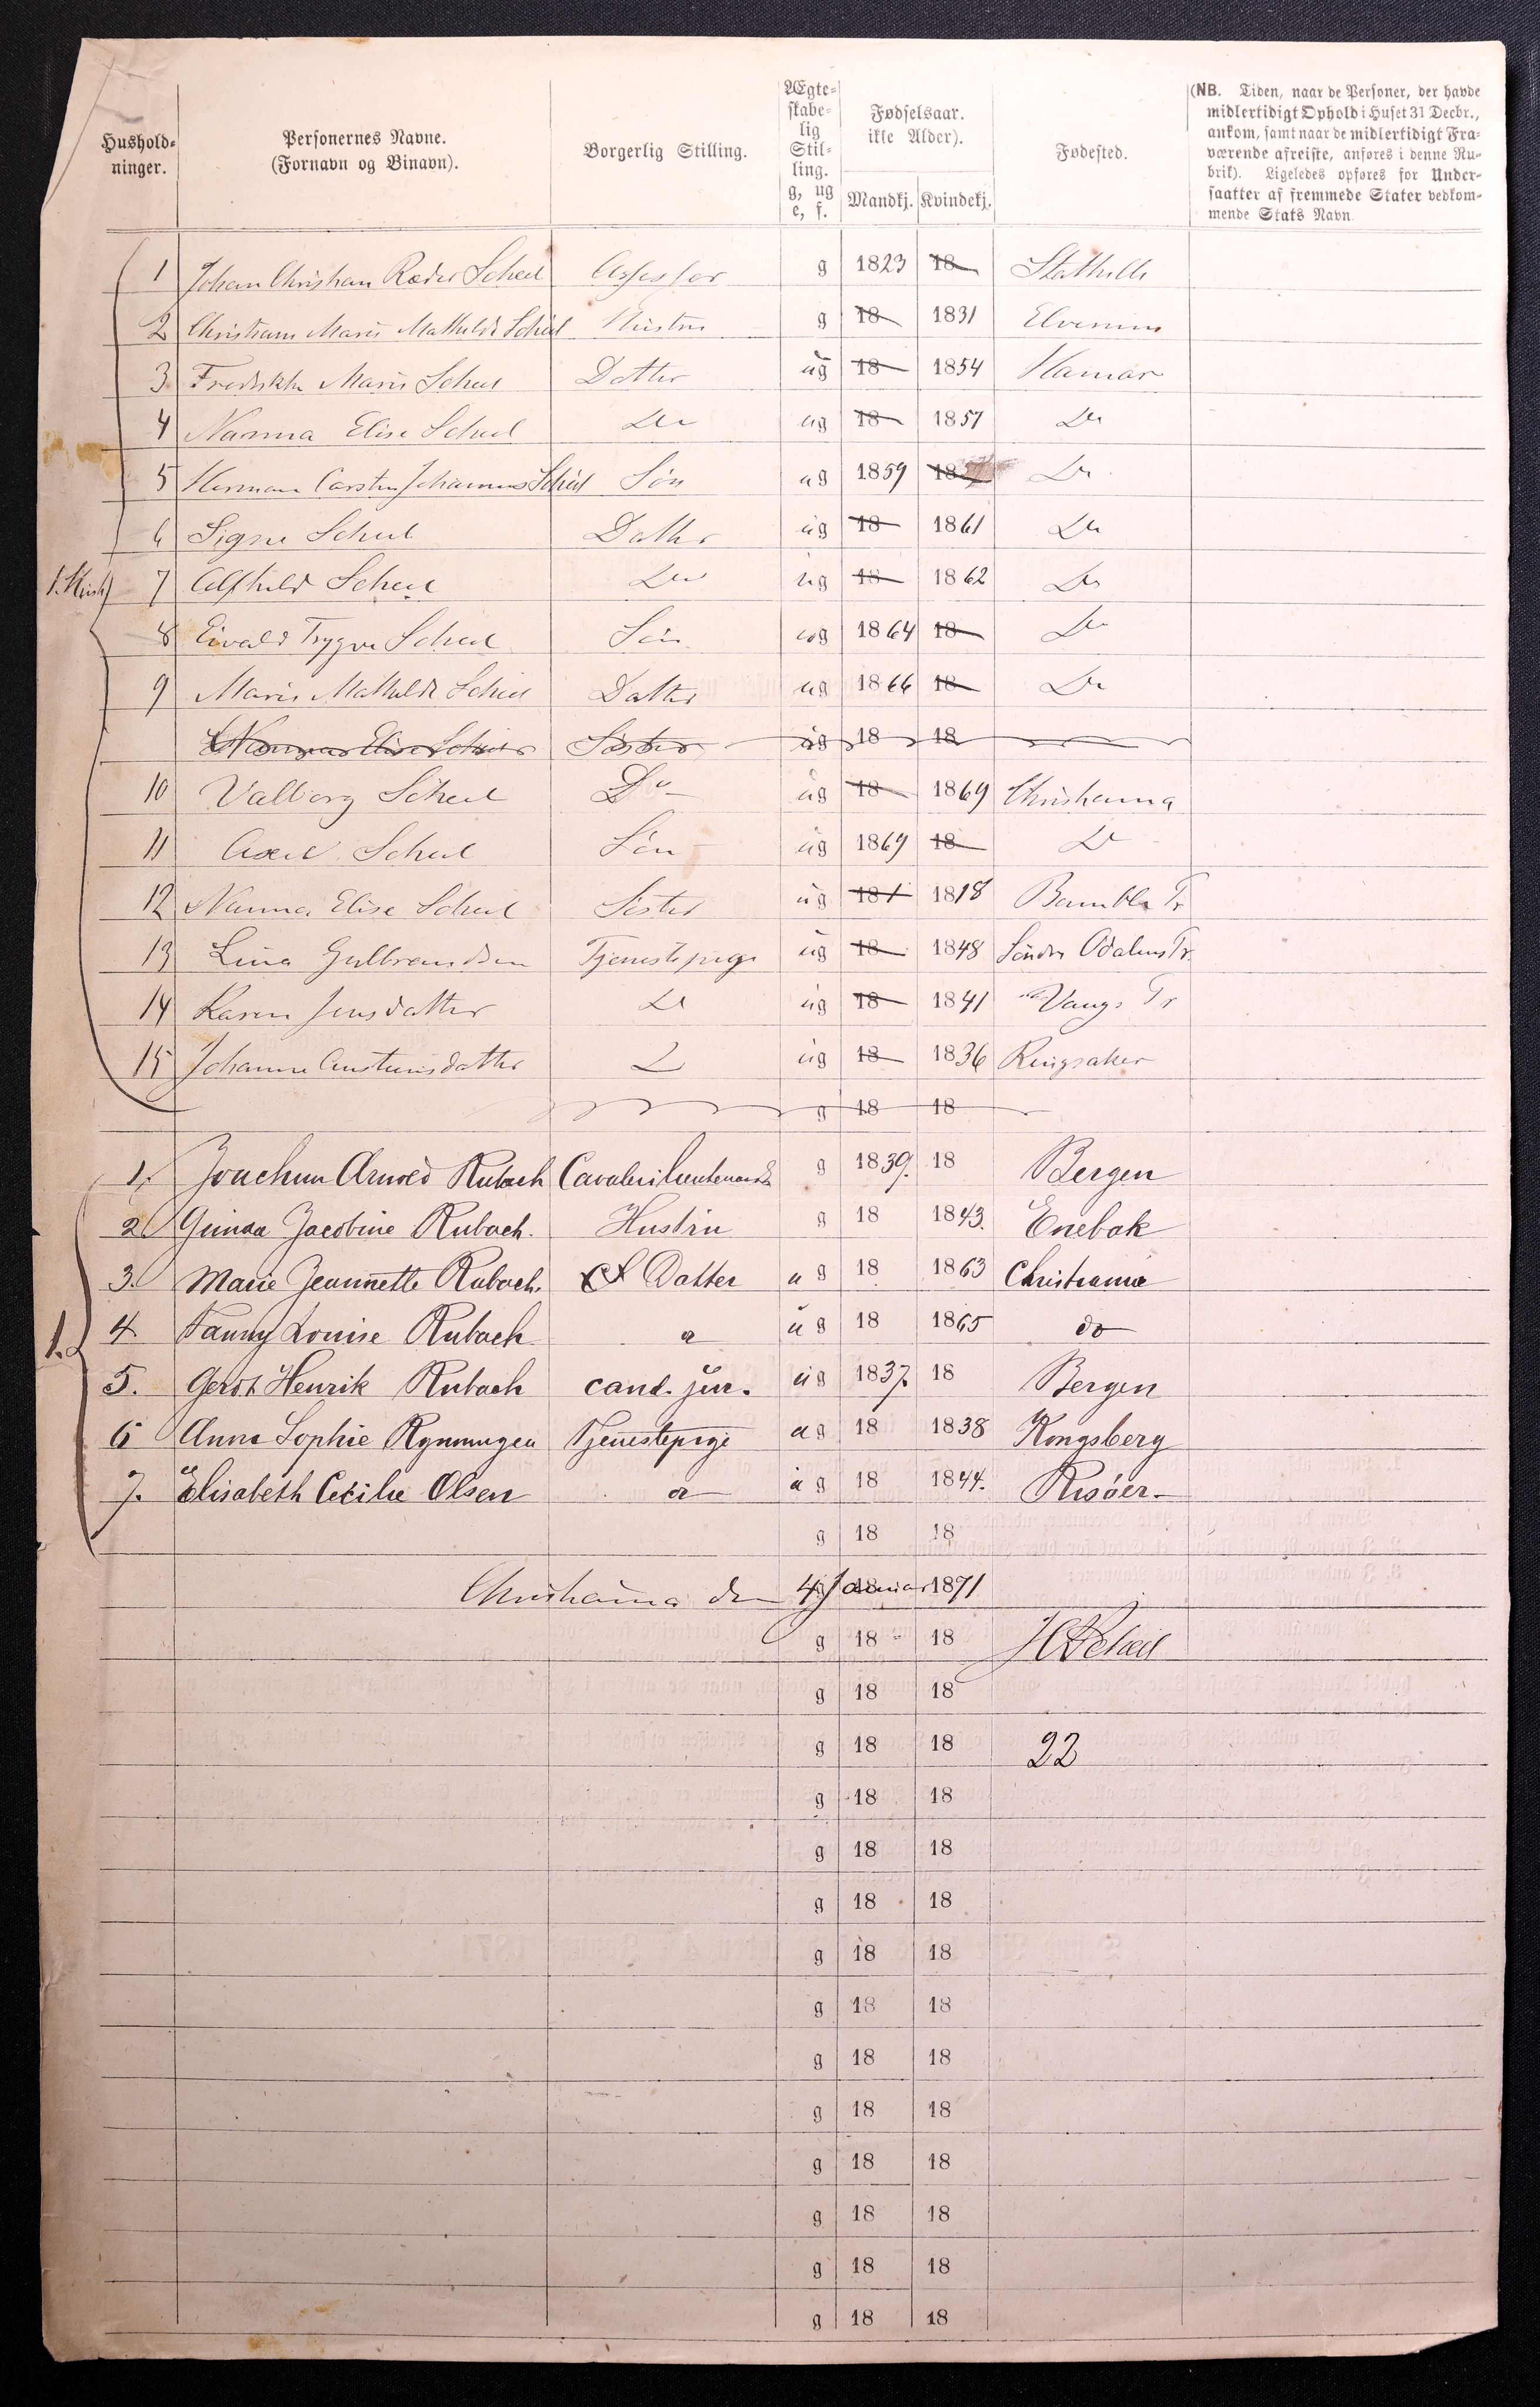 Hushold-
ninger.
Personernes Navne.
(Fornavn og Binavn).
Borgerlig Stilling.
Ægte-
skabe-
lig
Stil-
ling.
g, ug
e, f.
Fødselsaar.
ikke Alder).
Mandkj. Kvindekj.
Fødested.
(NB. Tiden, naar de Personer, der havde
midlertidigt Ophold i Huset 31 Decbr.,
ankom, samt naar de midlertidigt Fra-
værende afreiste, anføres i denne Ru-
brik). Ligeledes opføres for Under-
saatter af fremmede Stater vedkom-
mende Stats Navn.
1 Johan Christian Ræder Scheel Assessor g 1823 18 Stathelle
2 Christiane Marie Mathilde Scheel Hustru g 18 1831 Elverum
3 Fredrikke Marie Scheel Datter ug 18 1854 Hamar
4 Nanna Elise Scheel Do ug 18 1857 Do
5 Herman Carsten Johannes Scheel Søn ug 1859 18 Do
6 Signe Scheel Datter ug 18 1861 Do
7 Alfhild Scheel Do ug 18 1862 Do
8 Eivald Trygve Scheel Søn ug 1864 18 Do
9 Marie Mathilde Scheel Datter ug 1866 18 Do
Nanna Elise Scheel Søster ug 18 18
10 Valborg Scheel Do ug 18 1869 Christiania
11 Axel Scheel Søn ug 1869 18 Do
12 Nanna Elise Scheel Søster ug 181 1818 Bamble Pr
13 Lina Gulbrandsen Tjenestepige ug 18 1848 Søndre Odalens Pr.
14 Karen Jensdatter Do ug 18 1841 Vangs Pr
15 Johanne Austensdatter Do ug 18 1836 Ringsaker
g 18 18
1. Joachim Arnold Rubach Cavalerilieutenant g 1839. 18 Bergen
2. Gunda Jacobine Rubach. Hustru g 18 1843. Enebak
3. Marie Jeannette Rubach. Datter ug 18 1863 Christiania
1. 4. Fanny Louise Rubach do ug 18 1865 do
5. Gerdt Henrik Rubach cand. jur. ug 1837. 18 Bergen
6 Anne Sophie Rynningen Tjenestepige ug 18 1838 Kongsberg
7. Elisabeth Cecilie Olsen do ug 18 1844. Risöer
g 18 18
Christiania den 4 Januar 1871
g 18 18 JCRScheel
g 18 18
g 18 18 22
g 18 18
g 18 18
g 18 18
g 18 18
g 18 18
g 18 18
g 18 18
g 18 18
g 18 18
g 18 18
g 18 18